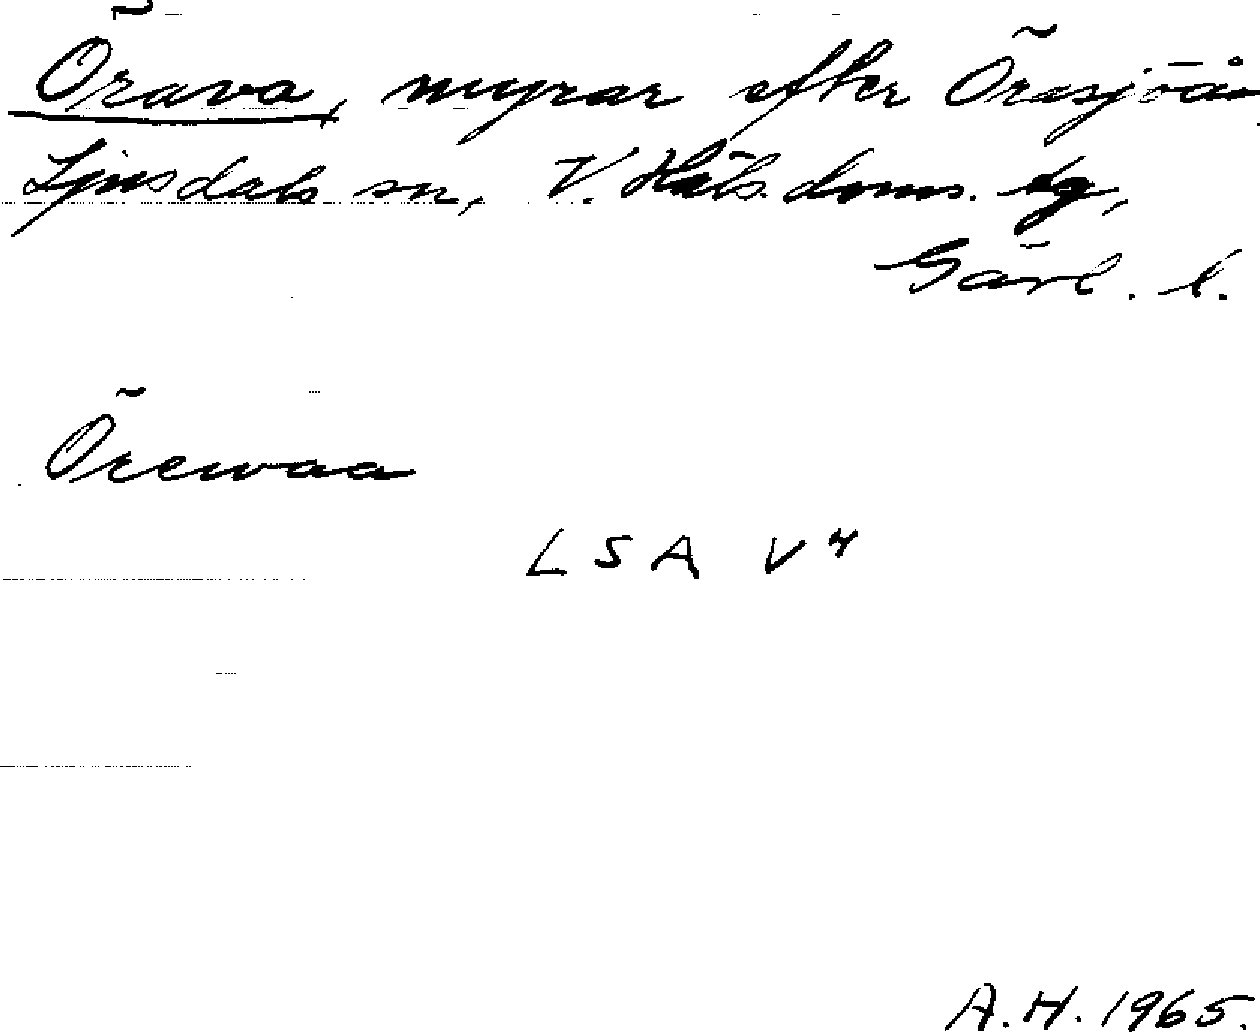 Örava, myrar efter Öresjöån
Ljusdals sn, V. Häls. doms. tg,
Gävl. l.
Örewaa
LSA V 4
A.H. 1965.